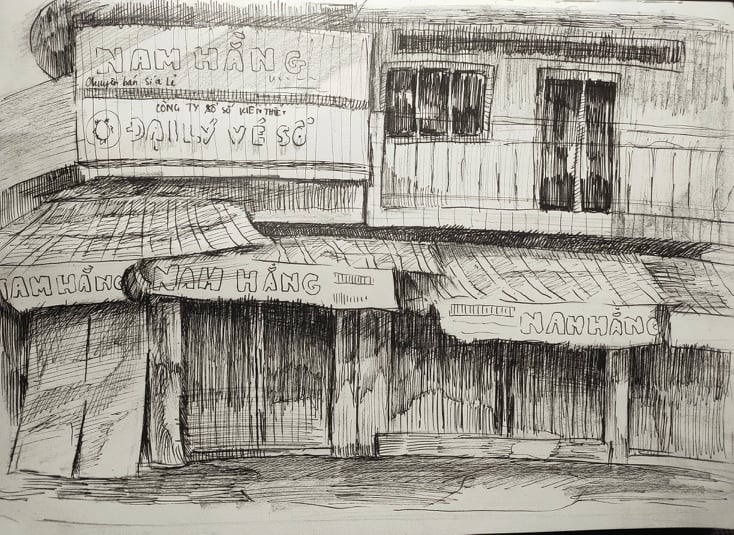 NAM HẰNG
Chuyên bán sỉ & lẻ
CÔNG TY XỔ SỐ KIẾN THIẾT
ĐẠI LÝ VÉ SỐ
NAM HẰNG
NAM HẰNG
NAM HẰNG